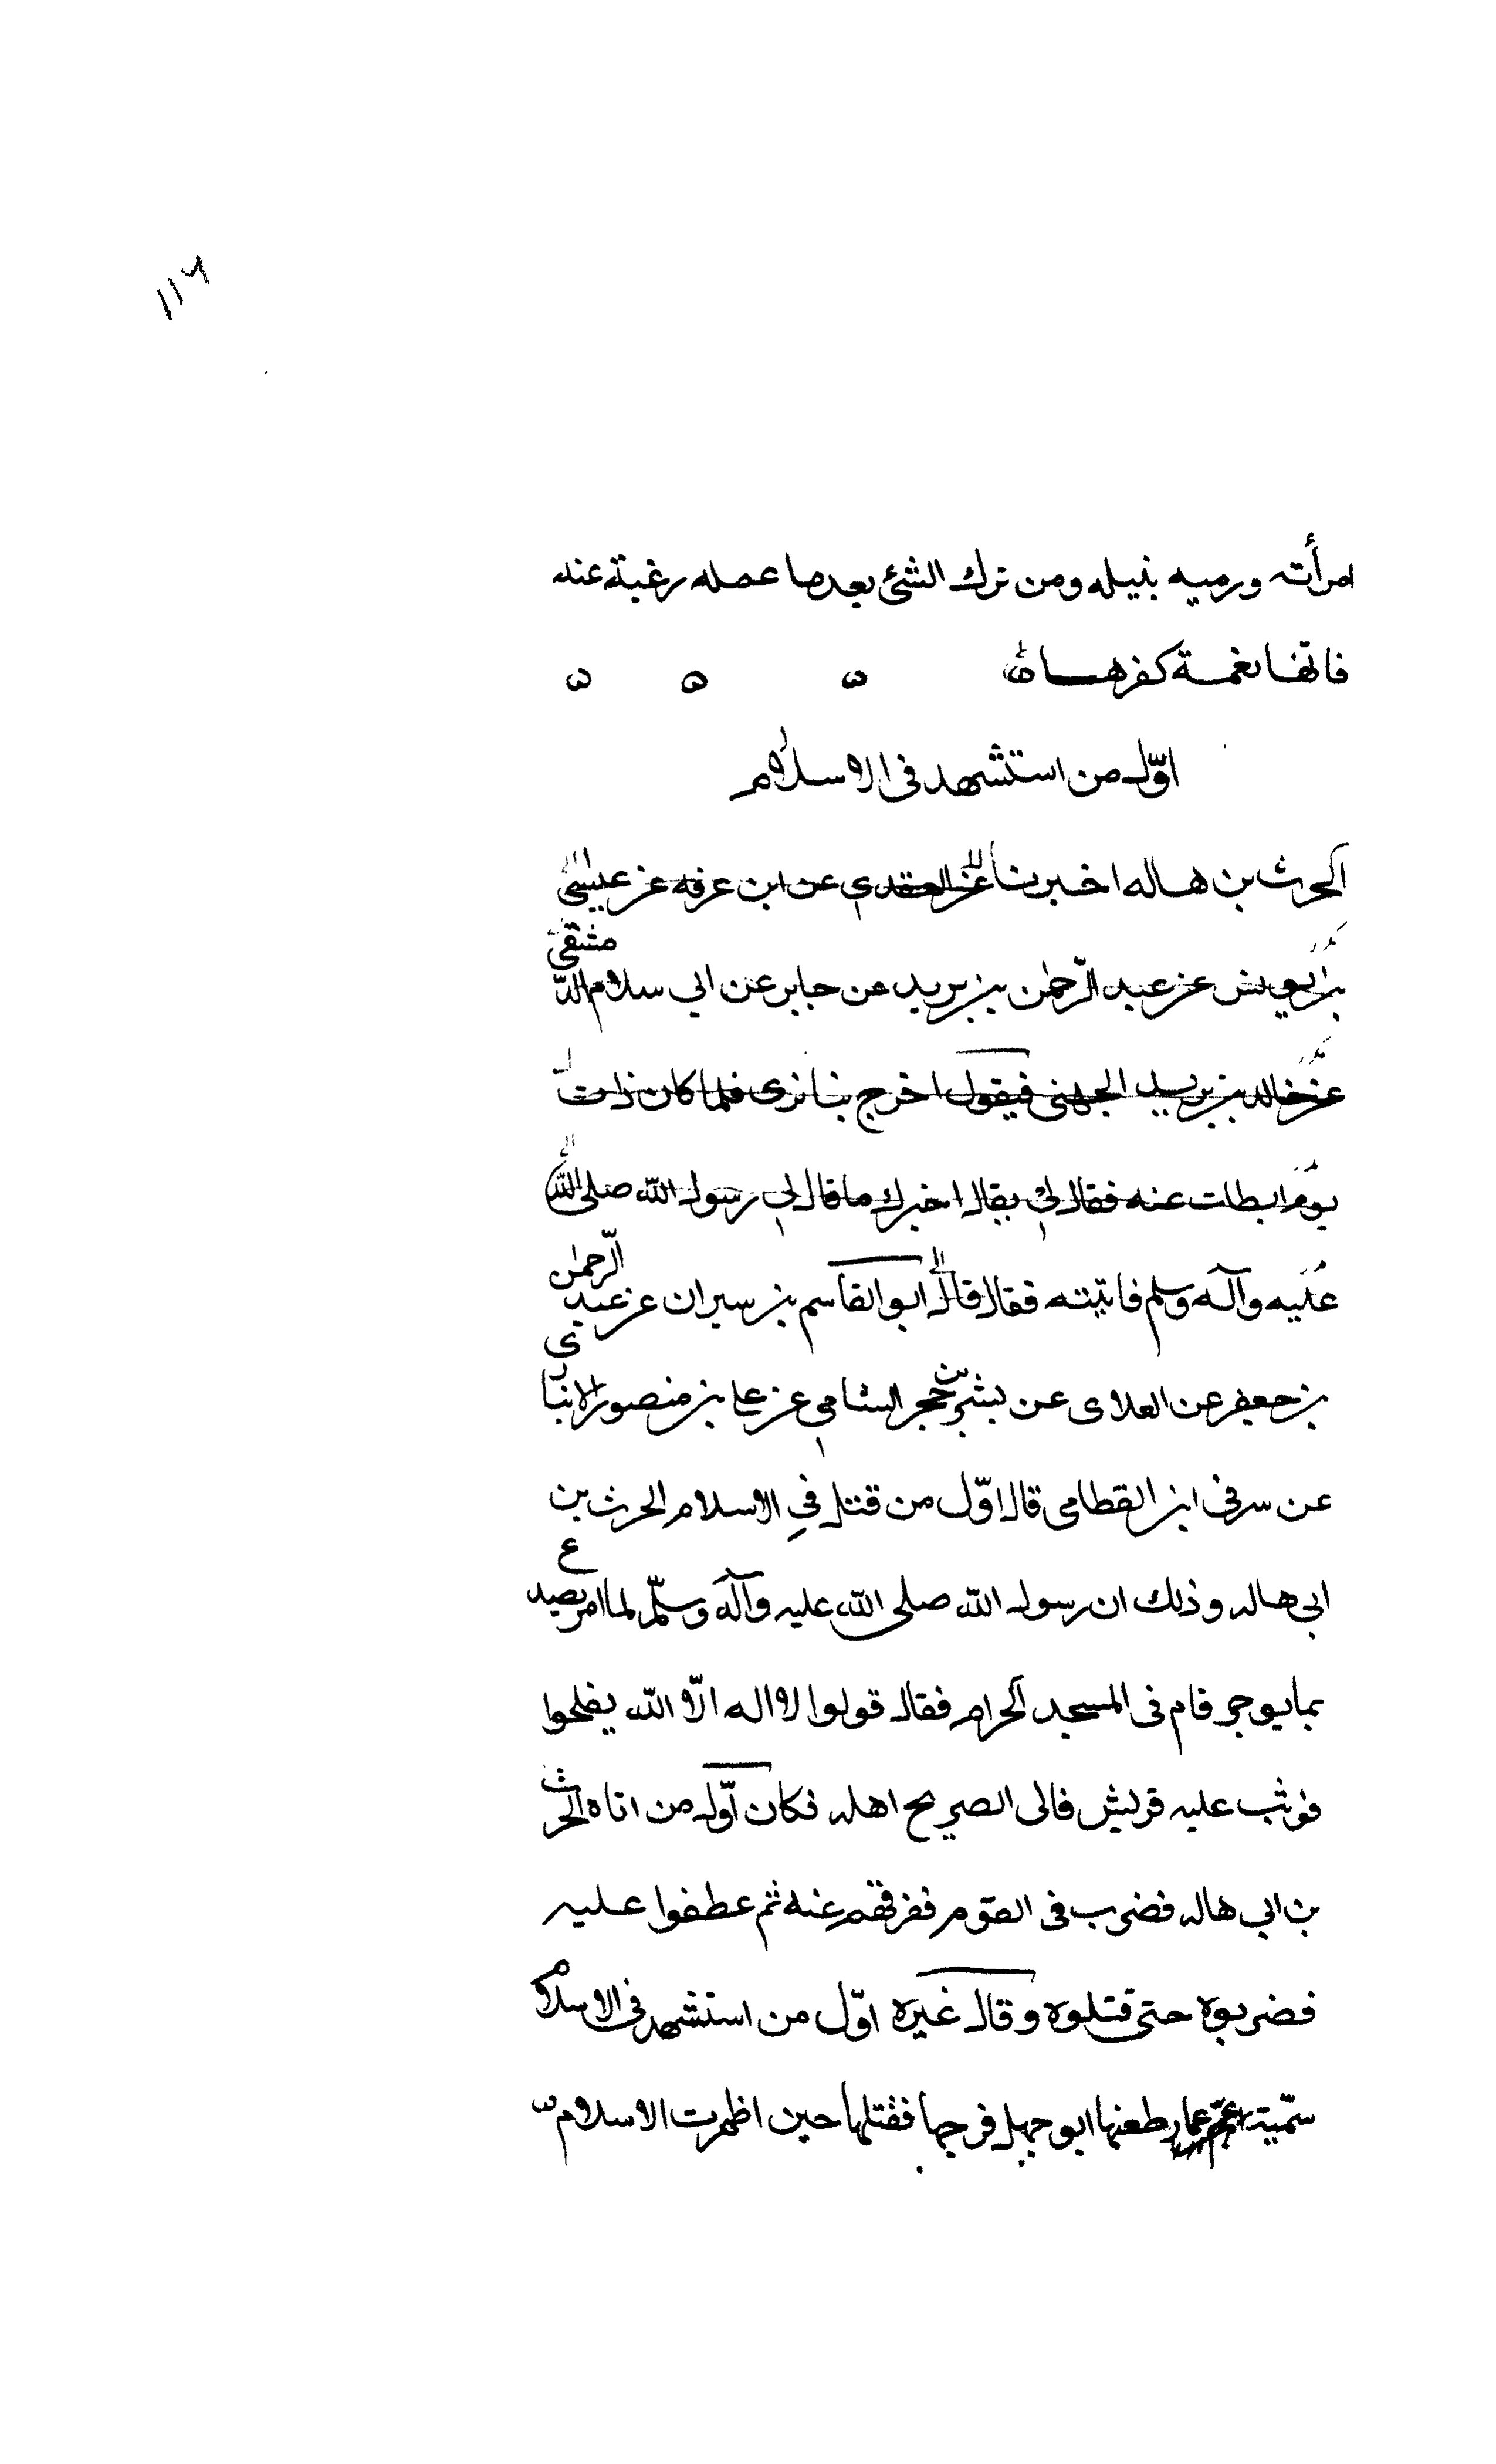 ١١٦
امرأته ورميه بنبله ومن ترك الشئ بعدما عمله رغبة عنه
فانها نعمة كفرها
اوّل من استشهد فى الاسلام
الحرث بن هاله اخبرنا عن العقدى عن ابن عرفه عن عيسى
بن يعيش عن عبد الرّحمن بن يريد عن جابر عن ابى سلام الدّمشقى
عن خالد بن يريد الجهنى فيقول اخرج بنا نرى فلما كان ذات
يوم ابطات عنه فقال لى يقال اخبرك ما قال لى رسول الله صلى الله
عليه وآله وسلم فاتيته فقال قال ابو القاسم بن سيران عن عبد الرّحمن
بن جعفر عن العلاى عن بشر بن حجر الشامى عن على بن منصور الانبارى
عن سرفى ابن القطامى قال اوّل من قتل فى الاسلام الحرث بن
ابى هاله وذلك ان رسول الله صلى الله عليه وآله وسلّم لما امر يصدع
بما يوحى قام فى المسجد الحرام فقال قولوا لا اله الّا الله يفلحوا
فوثب عليه قريش فاتى الصريح اهله فكان اوّل من اتاه الحرث
بن ابى هاله فضرب فى القوم ففرقهم عنه ثم عطفوا عليه
فضربوه حتى قتلوه وقال غيره اوّل من استشهد فى الاسلام
سمّية عمار طعنها ابو جهل فرجها فقتلها حين اظهرت الاسلام